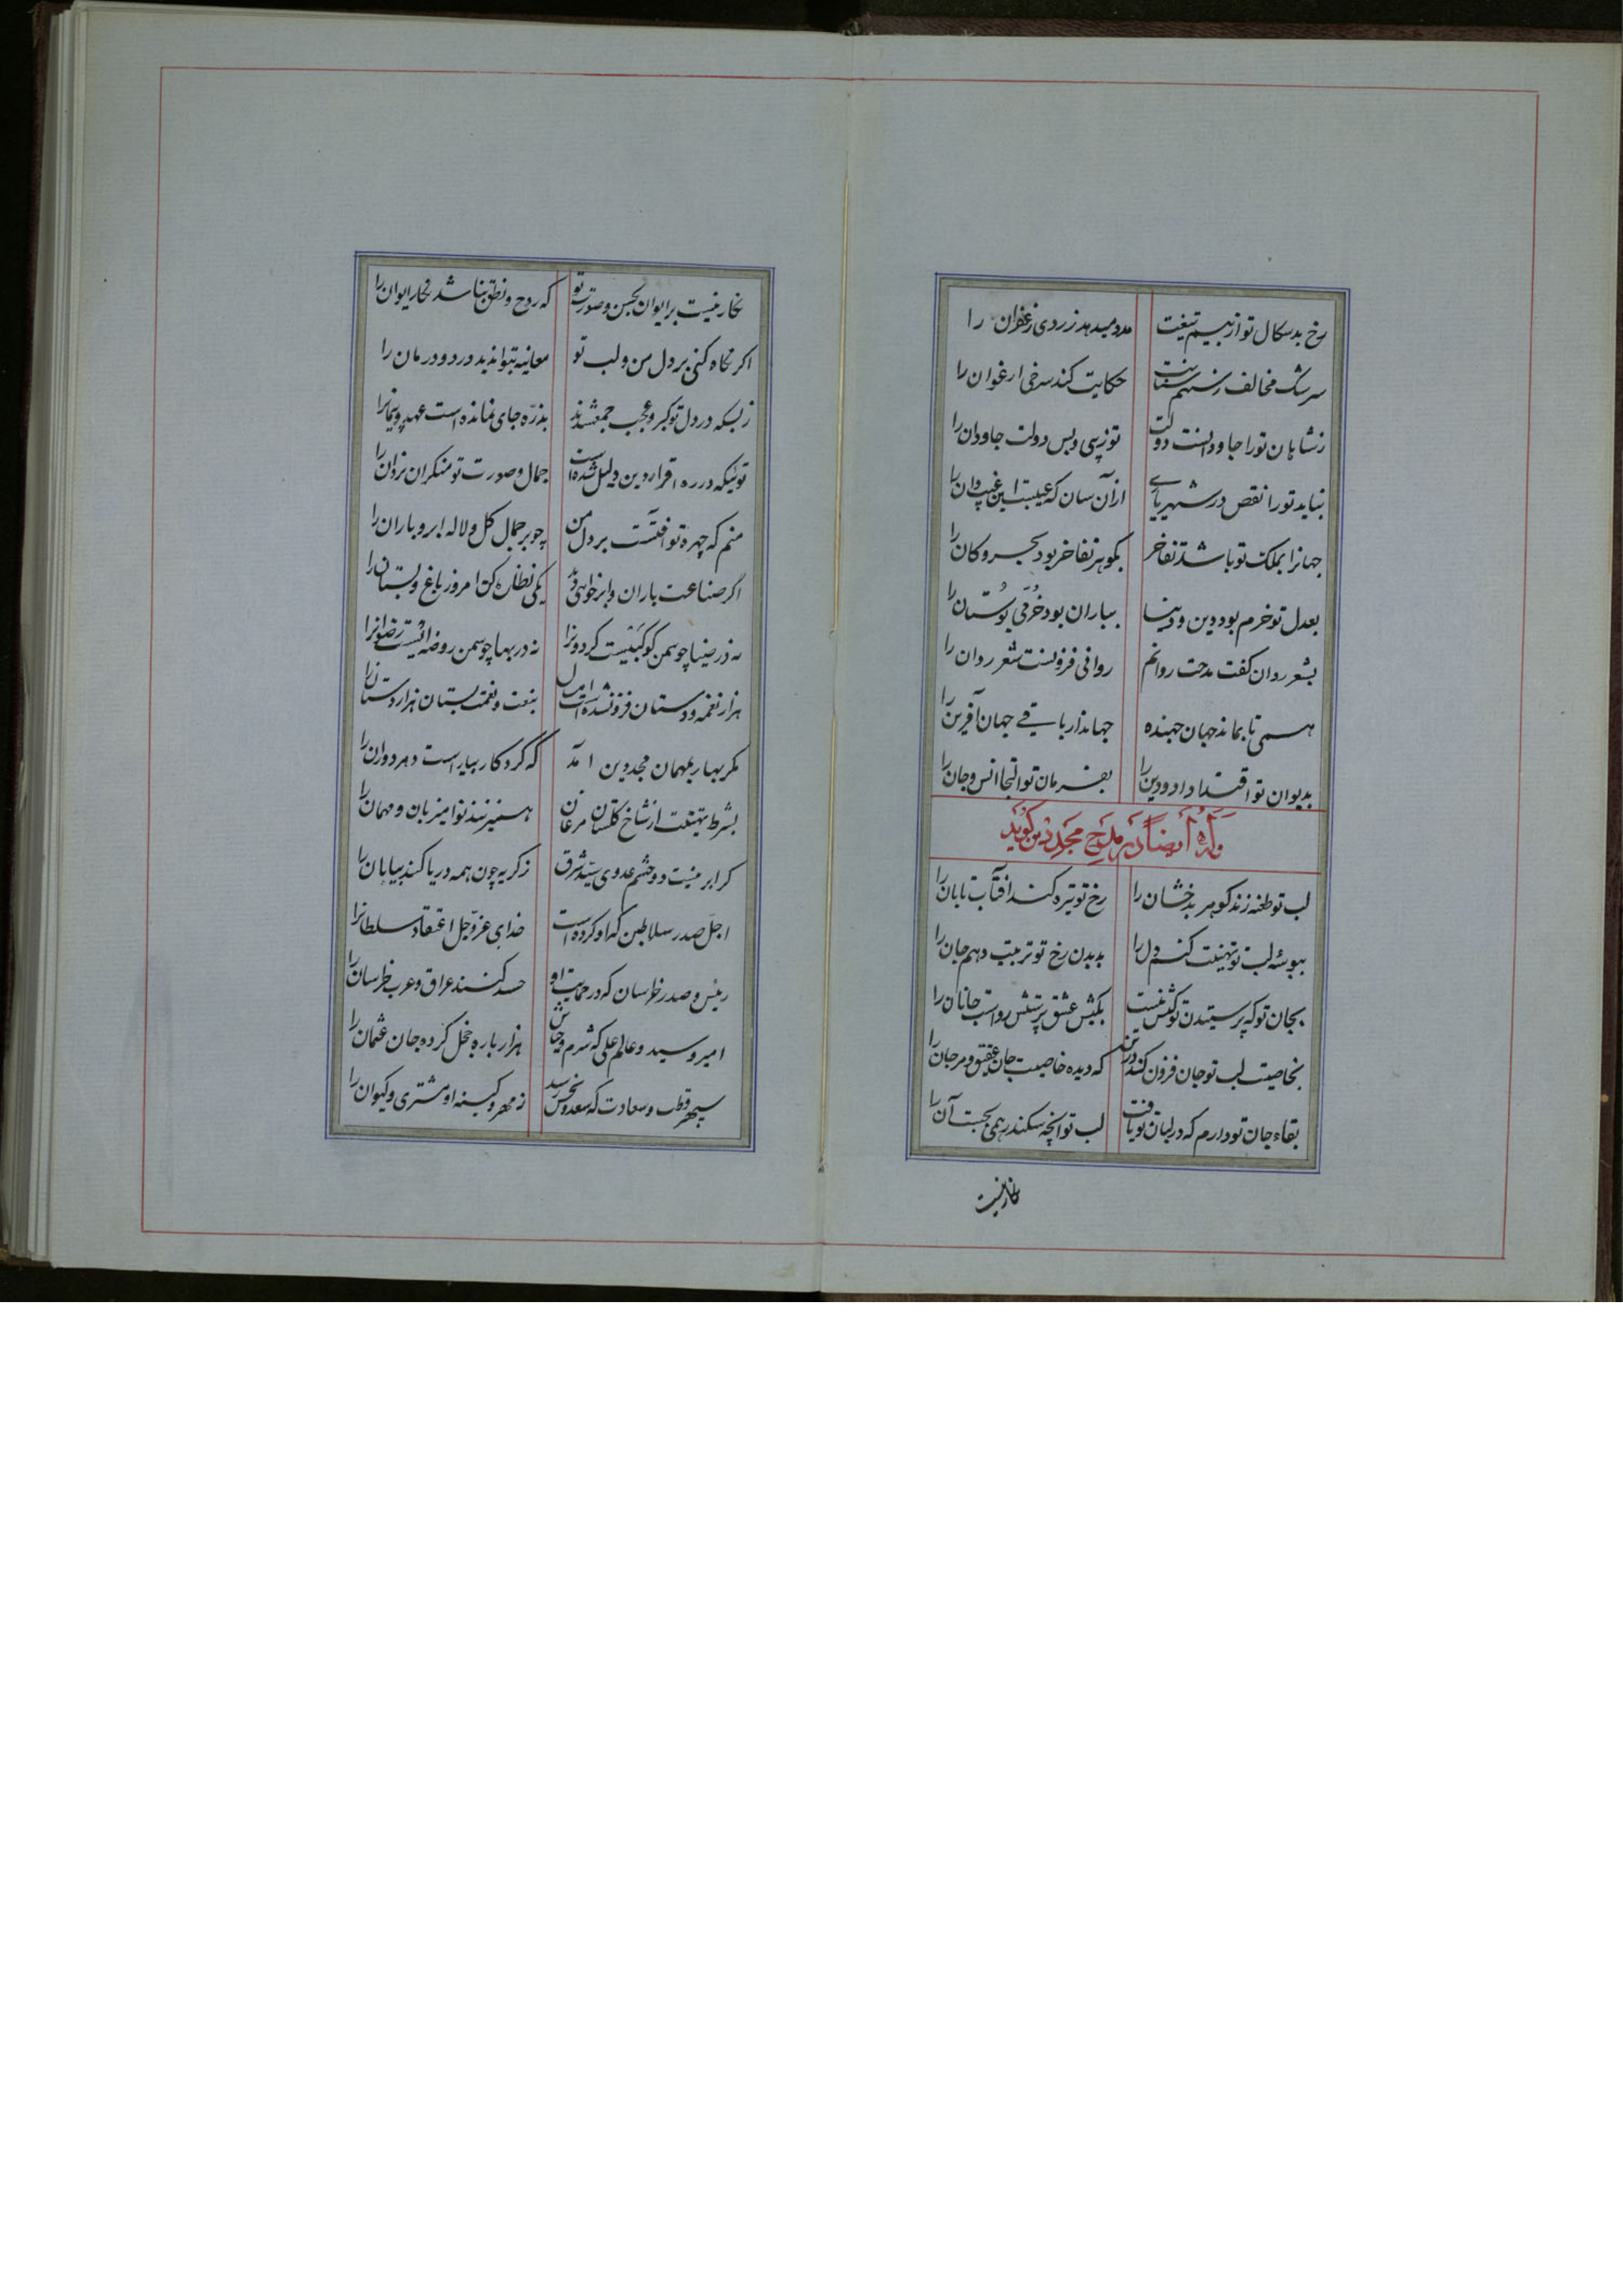 رخ بدسکال تو از بیم تیغت مدد میدهد زردی زعفران را
سرشک مخالف ز سهم سنانت حکایت کند سرخی ارغوان را
ز شاهان تو را جاودانست دولت تو زیبی و بس دولت جاودان را
نیاید تو را نقص در شهریاری از آن سان که عیبست این غیب دان را
جهانرا بملک تو باشد تفاخر بگوهر تفاخر بود بحر و کان را
بعدل تو خرم بود دین و دنیا بباران بود خرّمی بوستان را
بشعر روان گفت مدحت روانم روانی فزونست شعر روان را
همی تا بماند جهان جهنده جهاندار باقی جهان آفرین را
بدیوان تو اقتدا داد و دین را بفرمان تو التجا انس و جان را
وله ایضاً در مدح مجددین گوید
لب تو طعنه زند گوهر بدخشان را رخ تو تیره کند آفتاب تابان را
ببوسه لب تو تهنیت کنم دل را بدیدن رخ تو تربیت دهم جان را
بجان تو که پرستیدن تو کیش منست بکیش عشق پرستش رواست جانان را
بخاصیت لب تو جان فزون کند در تن که دیده خاصیت جان عقیق و مرجان را
بقاء جان تو دارم که در لبان تو یافت لب تو آنچه سکندر همی بجست آن را
نگار نیست
نگار نیست بر ایوان بحسن و صورت تو که روح و نطق نباشد نگار ایوان را
اگر نگاه کنی بر دل من و لب تو معاینه بتوانی دید درد و درمان را
ز بسکه در دل تو کبر و عجب جمع شدند بذرّه جای نمانده است عهد و پیمانرا
توئیکه در ره اقرار دین دلیل شده است جمال و صورت تو منکران یزدان را
منم که چهره تو آفتست بر دل من چو بر جمال گل و لاله ابر و باران را
اگر صناعت باران و ابر خواهی دید یکی نظاره کن امروز باغ و بستان را
نه در ضیا چو سمن کوکبیست گردونرا نه در بها چو سمن روضه ایست رضوانرا
هزار نغمه و دستان فزون شده است امسال بنعت و نغمت بستان هزاردستان را
مگر بهار بمهمان مجددین آمد که کردکار بیاراست دهر دوران را
بشرط تهنیت از شاخ گلستان مرغان همی زنند نوا میزبان و مهمان را
گر ابر نیست دو چشم عدوی سیّد شرق ز گریه چون همه دریا کند بیابان را
اجلّ صدر سلاطین که او کرده است خدای عزّوجل اعتقاد سلطانرا
رئیس و صدر خراسان که در حمایت او حسد کنند عراق و عرب خراسان را
امیر و سید و عالم علی که شرم و حیاش هزار باره خجل کرده جان عثمان را
سپهر قطب و سعادت که سعد و نحس رسد ز مهر و کینه او مشتری و کیوان را